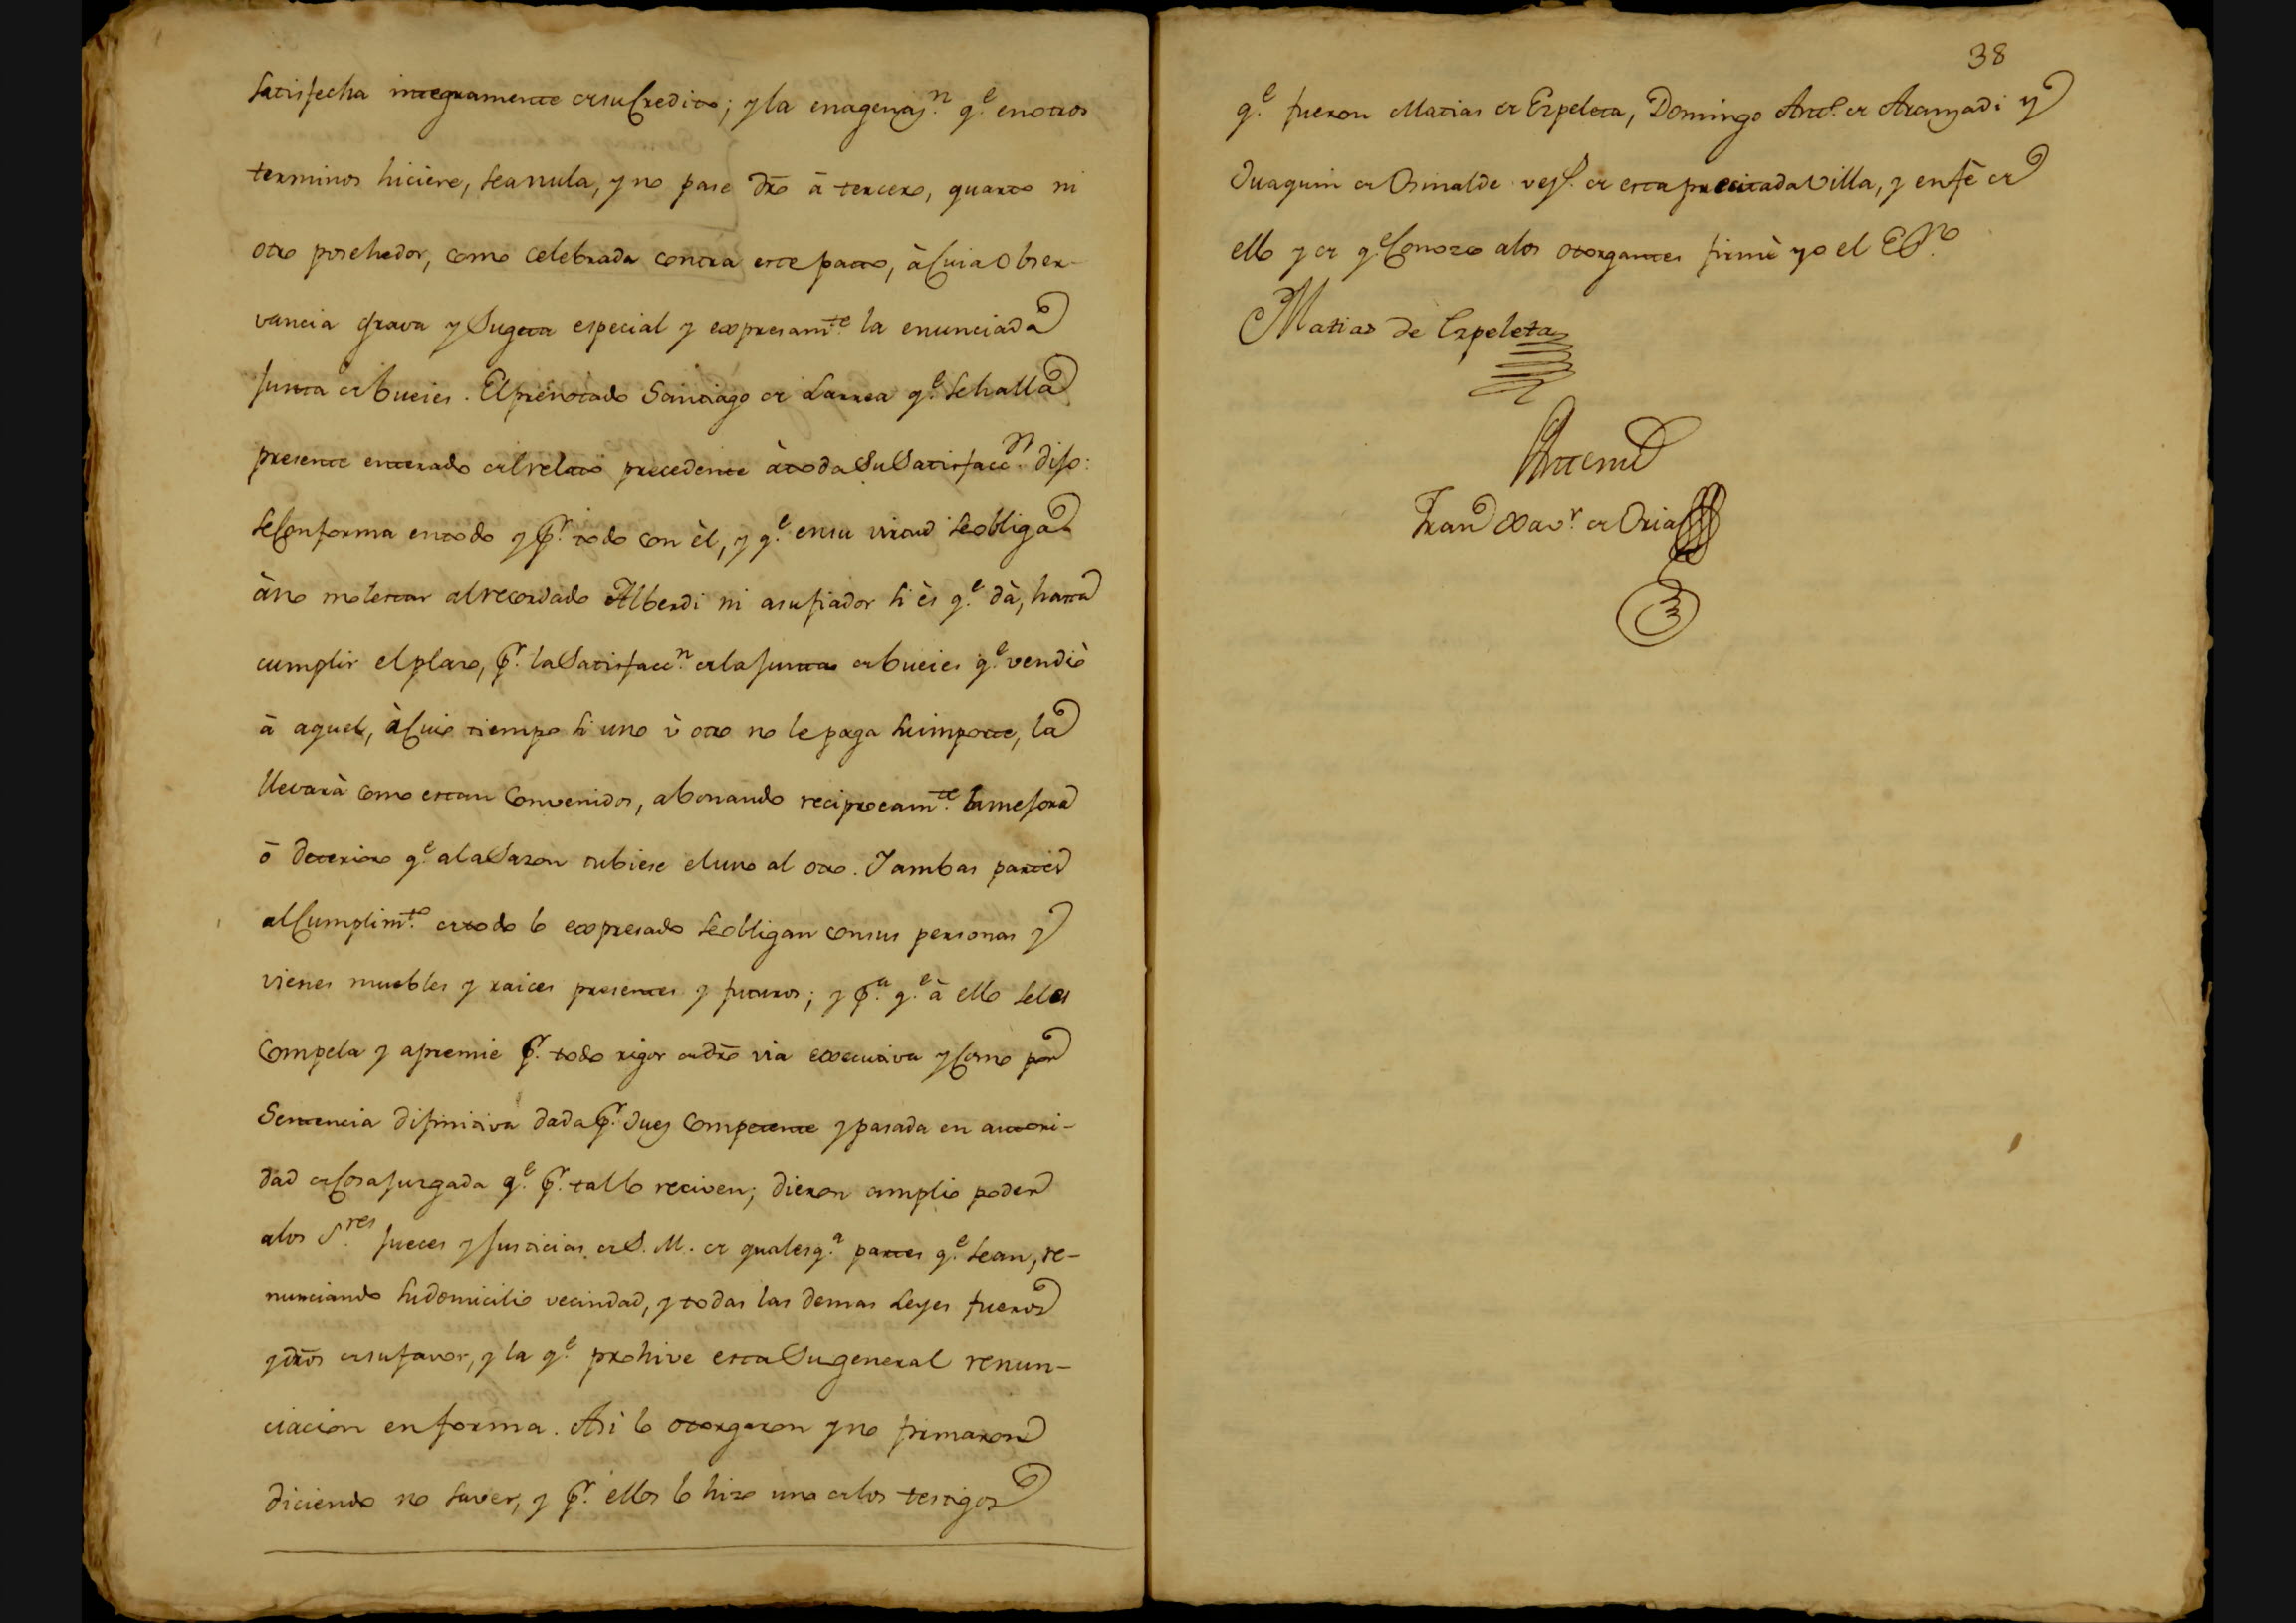 satisfecha integramente de su Credito; y la enagenaz.n q.e en otros
terminos hiciere, sea nula, y no pase dr̃o à tercero, quarto ni
otro posehedor, como celebrada contra este pacto, à Cuia obser-
vancia grava y Sugeta especial y expresam.te la enunciada
Junta de bueies. El prenotado Santiago de Larrea q.e se halla
presente enterado del relato precedente à toda Su Satisfacc.n dijo:
se Conforma en todo y p.r todo con èl, y q.e en su virtud se obliga
à no molestar al recordado Alberdi ni a su fiador si ès q.e dà, hasta
cumplir el plazo, p.r la Satisfacc.n de la Junta de bueies q.e vendiò
à aquel, à Cuio tiempo si uno ù otro no le paga su importe, la
llevarà como estan Convenidos, abonando reciprocam.te la mejora
ô deterioro q.e a la Sazon tubiese el uno al otro. Y ambas partes
al Cumplim.to de todo lo expresado se obligan con sus personas y
vienes muebles y raices presentes y futuros; y p.a q.e à ello se les
Compela y apremie p.r todo rigor de dr̃o via executiva y Como por
Sentencia difinitiva dada p.r Juez Competente y pasada en autori-
dad de Cosa juzgada q.e p.r tal lo reciven; dieron amplio poder
a los S.res Jueces y Justicias de S. M. de qualesq.a partes q.e sean, re-
nunciando su domicilio vecindad, y todas las demas Leyes fueros
y dr̃os de su favor, y la q.e prohive esta Su general renun-
ciacion en forma. Asi lo otorgaron y no firmaron
diciendo no saver, y p.r ellos lo hizo uno de los testigos
38
q.e fueron Matias de Ezpeleta, Domingo Ant.o de Aranzadi y
Juaquin de Osinalde vez.s de esta precitada Villa, y en fè de
ello y de q.e Conozco a los otorgantes firmè yo el Ess.no
Matias de Ezpeleta
Ante mi
Fran.co Xav.r de Oria